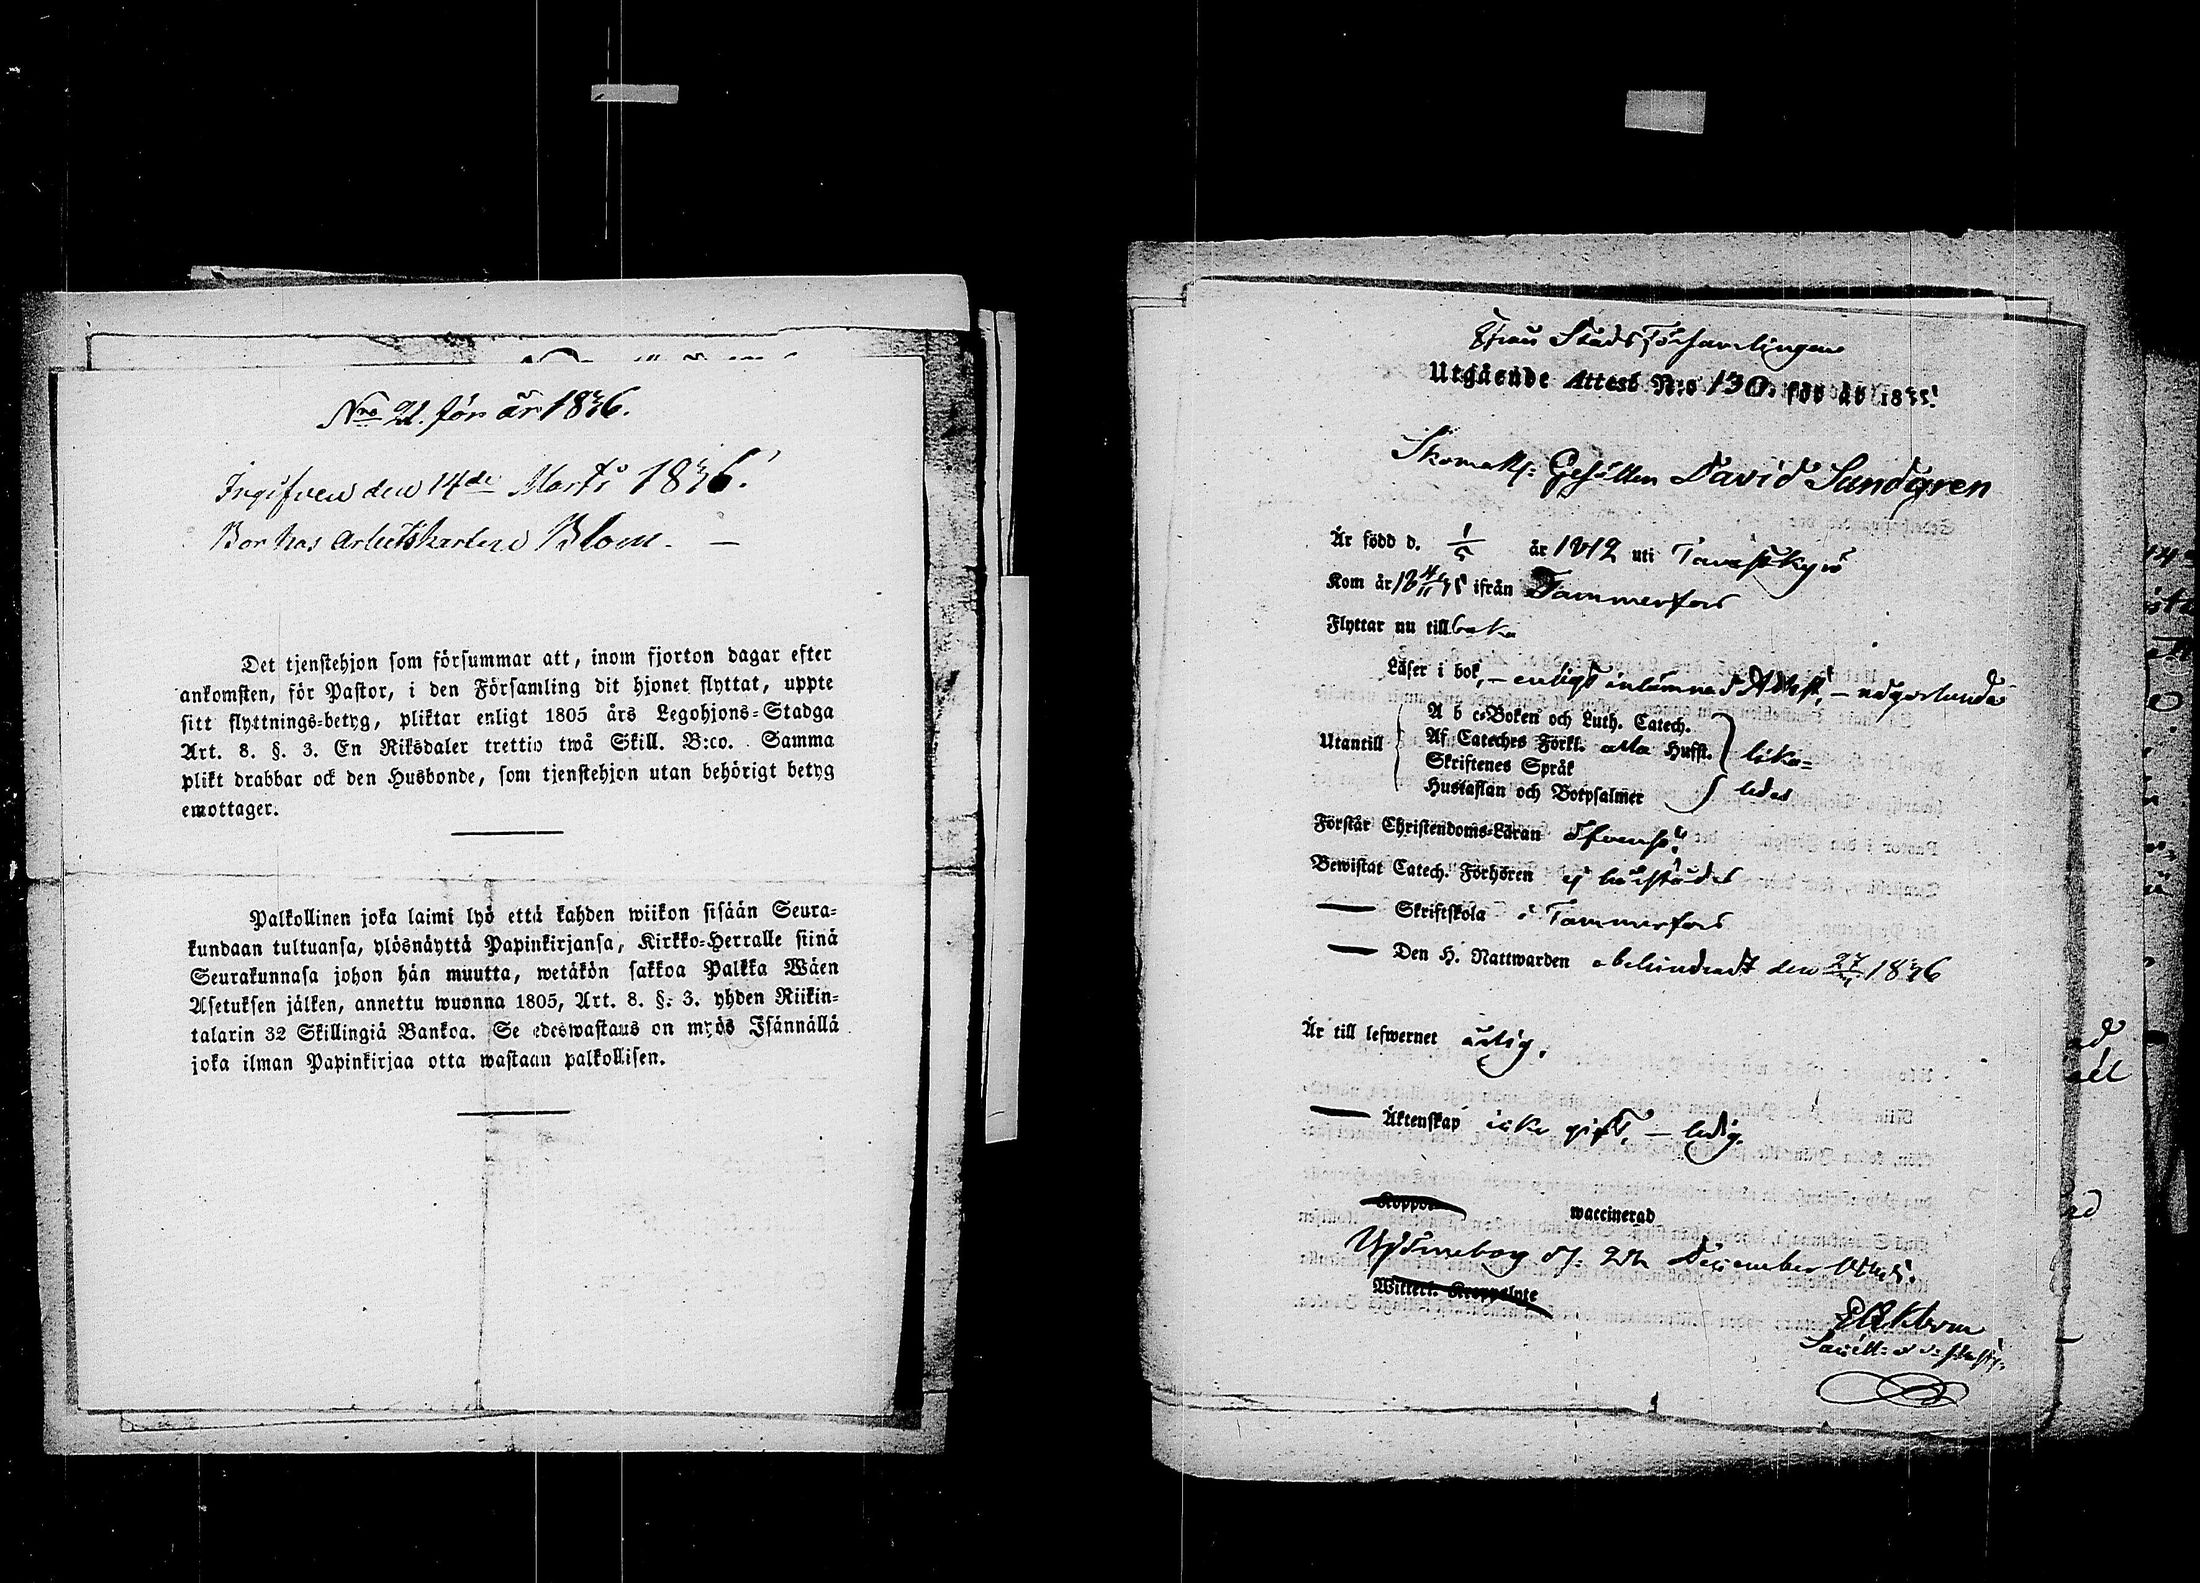 Nro 21. för år 1836.
Ingifven den 14de Marti 1836.
Bor hos Arbetskarlen Blom. —
Det tjenstehjon som försummar att, inom fjorton dagar efter
ankomsten, för Pastor, i den Församling dit hjonet flyttat, uppte
sitt flyttnings=betyg, pliktar enligt 1805 års Legohjons=Stadga
Art. 8. §. 3. En Riksdaler trettio twå Skill. B:co. Samma
plikt drabbar ock den Husbonde, som tjenstehjon utan behörigt betyg
emottager.
Palkollinen joka laimi lyö että kahden wiikon sisään Seura=
kundaan tultuansa, ylösnäyttä Papinkirjansa, Kirkko=Herralle siinä
Seurakunnasa johon hän muutta, wetäkön sakkoa Palkka Wäen
Asetuksen jälken, annettu wuonna 1805, Art. 8. §. 3. yhden Riikin=
talarin 32 Skillingiä Bankoa. Se edeswastaus on myös Isännällä
joka ilman Papinkirjaa otta wastaan palkollisen.
Från Stads Församlingen
Utgående Attest N:o 130. för år 1835.
Skomak: Gesällen David Sandgren
Är född d. 1/5 år 1812 uti Tavastkyrö
Kom år 18 35 ifrån Tammerfors
Flyttar nu tillbaka
Läser i bok, – enligt inlemnad Attest, – någorlunda
A b c=Boken och Luth. Catech.
Utantill Af Cateches Förkl. alla Hufst. lika=
Skriftenes Språk
Hustaflan och Botpsalmer ledes
Förstår Christendoms=Läran
Bewistat Catech. Förhören ej
— Skriftskola i Tammerfors
— Den H. Nattwarden obehindradt den 1836
Är till lefwernet ärlig.
— Äktenskap icke gift, – ledig.
Koppor waccinerad
d. December
Witterl. Kroppslyte